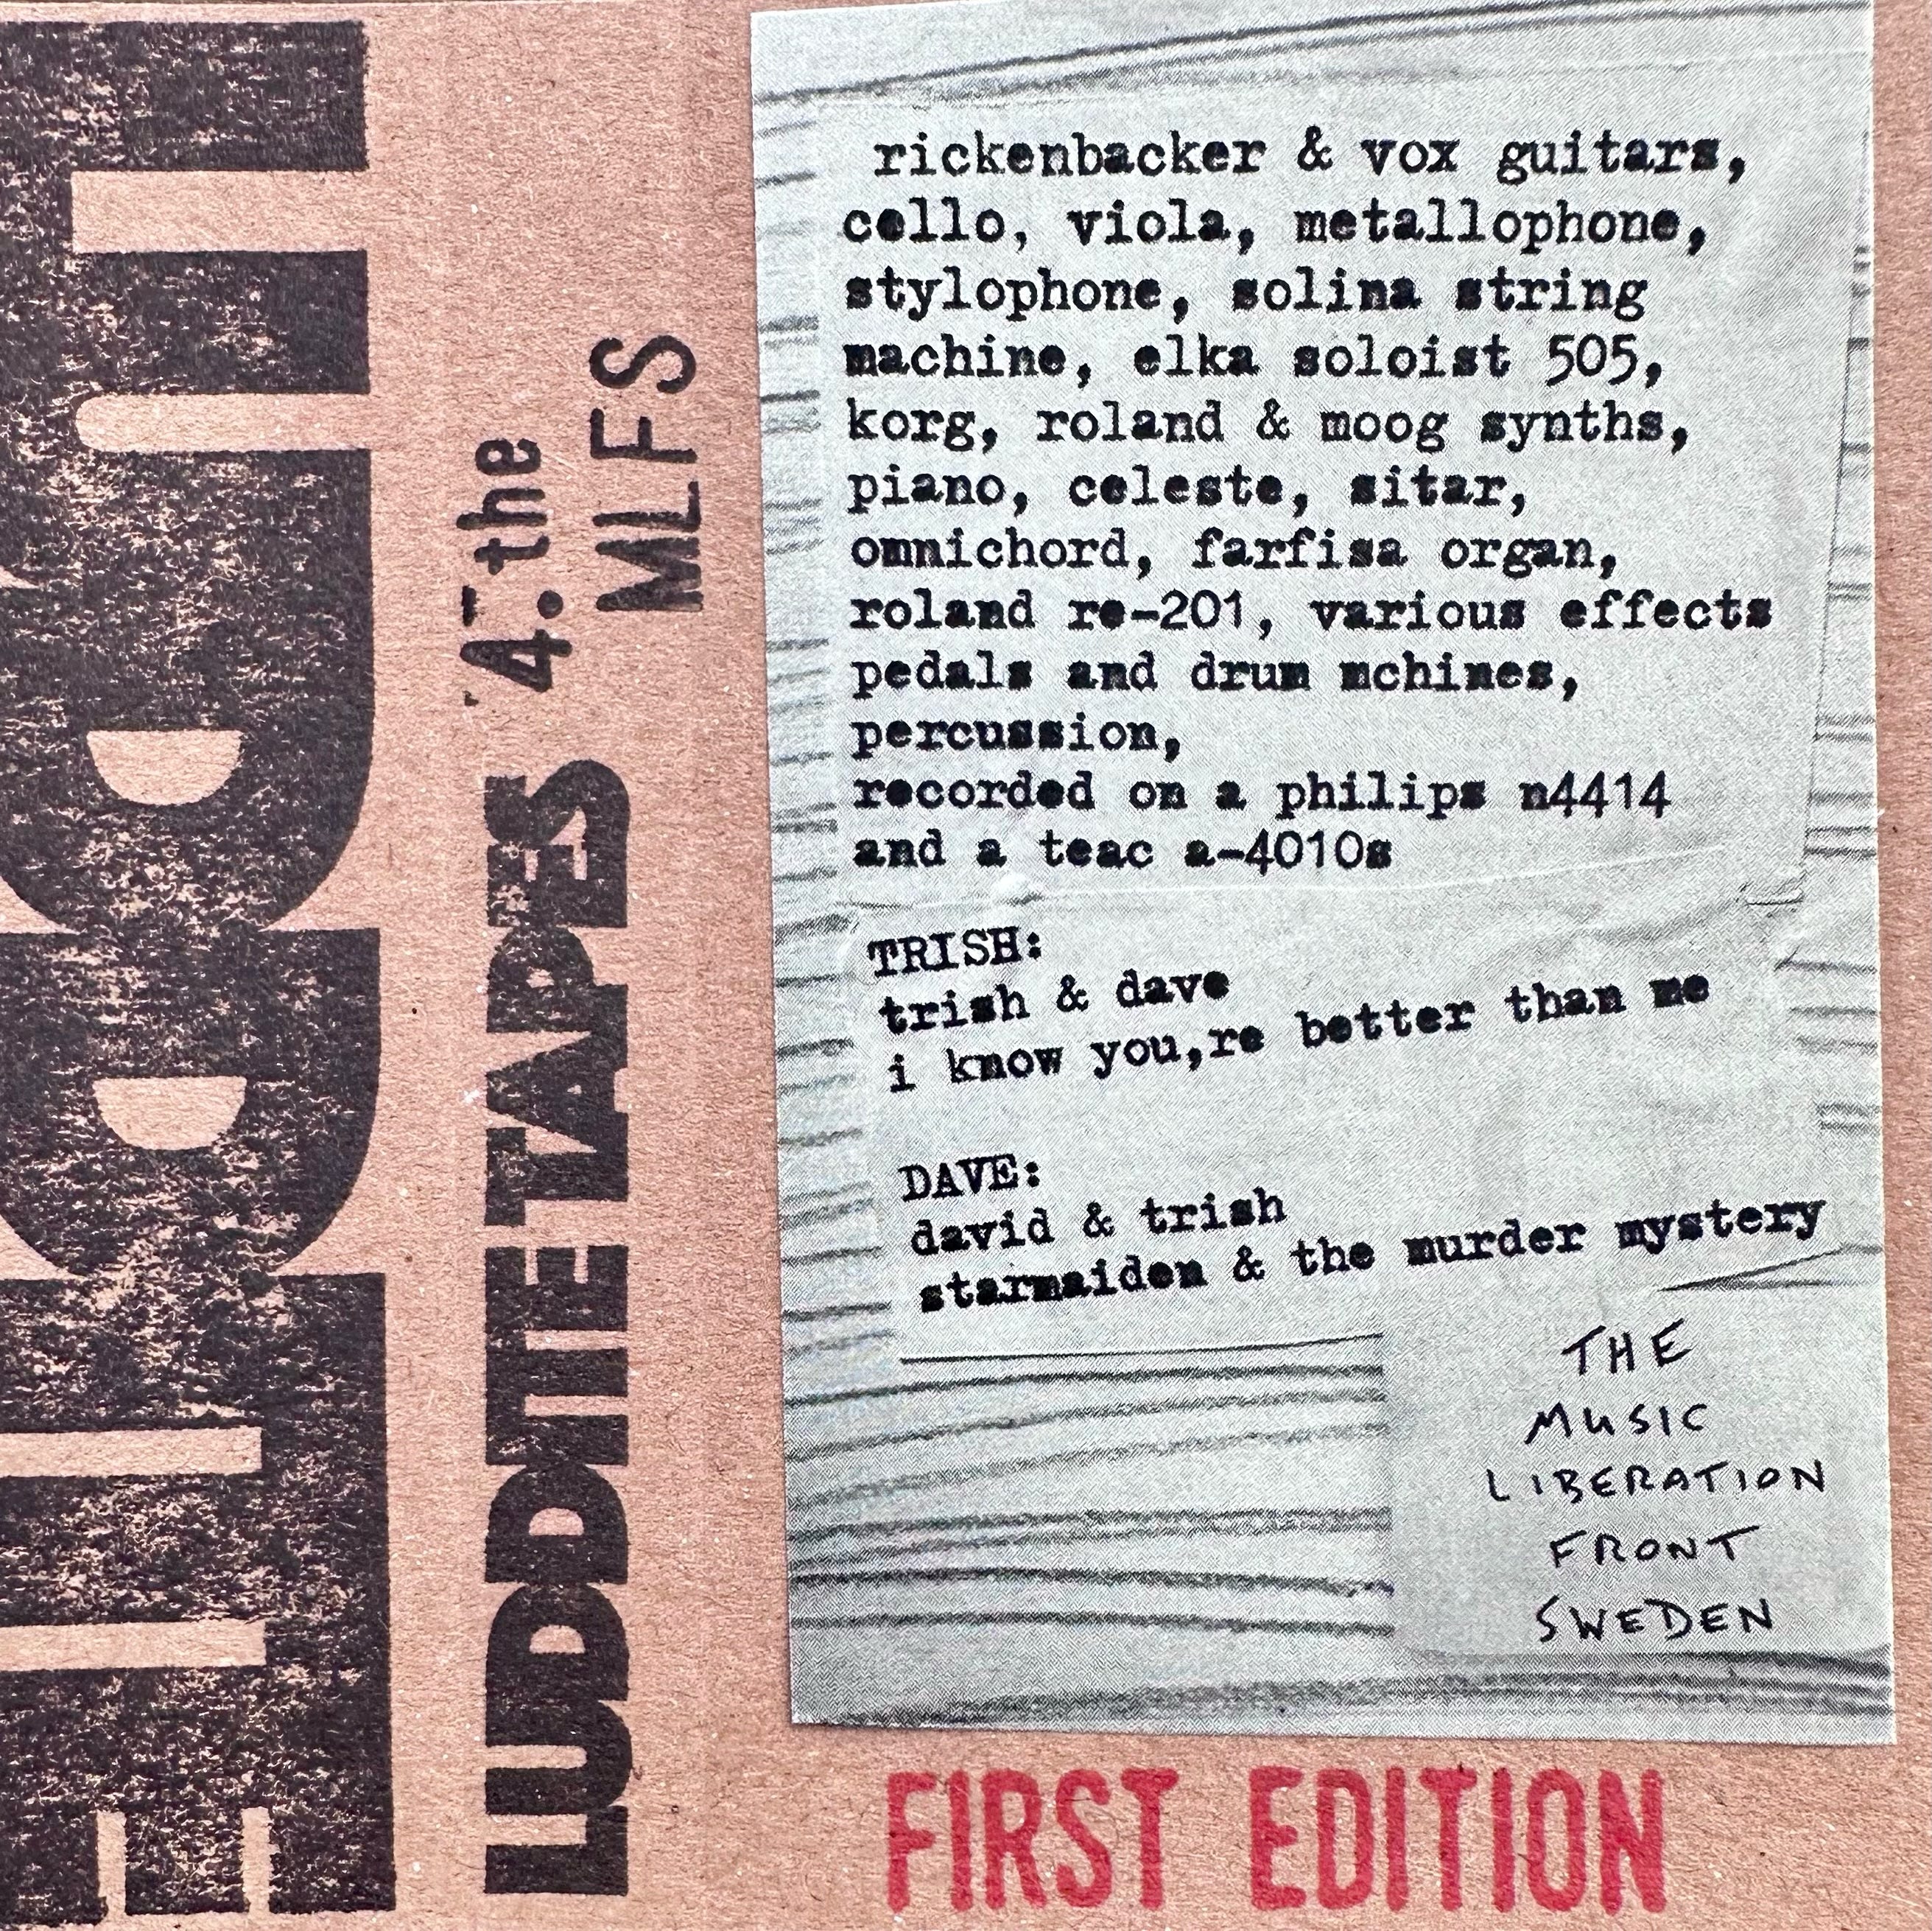 LUDDITE
LUDDITE TAPES 4.the
MLFS
rickenbacker & vox guitars,
cello, viola, metallophone,
stylophone, solina string
machine, elka soloist 505,
korg, roland & moog synths,
piano, celeste, sitar,
omnichord, farfisa organ,
roland re-201, various effects
pedals and drum mchines,
percussion,
recorded on a philips n4414
and a teac a-4010s
TRISH:
trish & dave
i know you,re better than me
DAVE:
david & trish
starmaiden & the murder mystery
THE
MUSIC
LIBERATION
FRONT
SWEDEN
FIRST EDITION